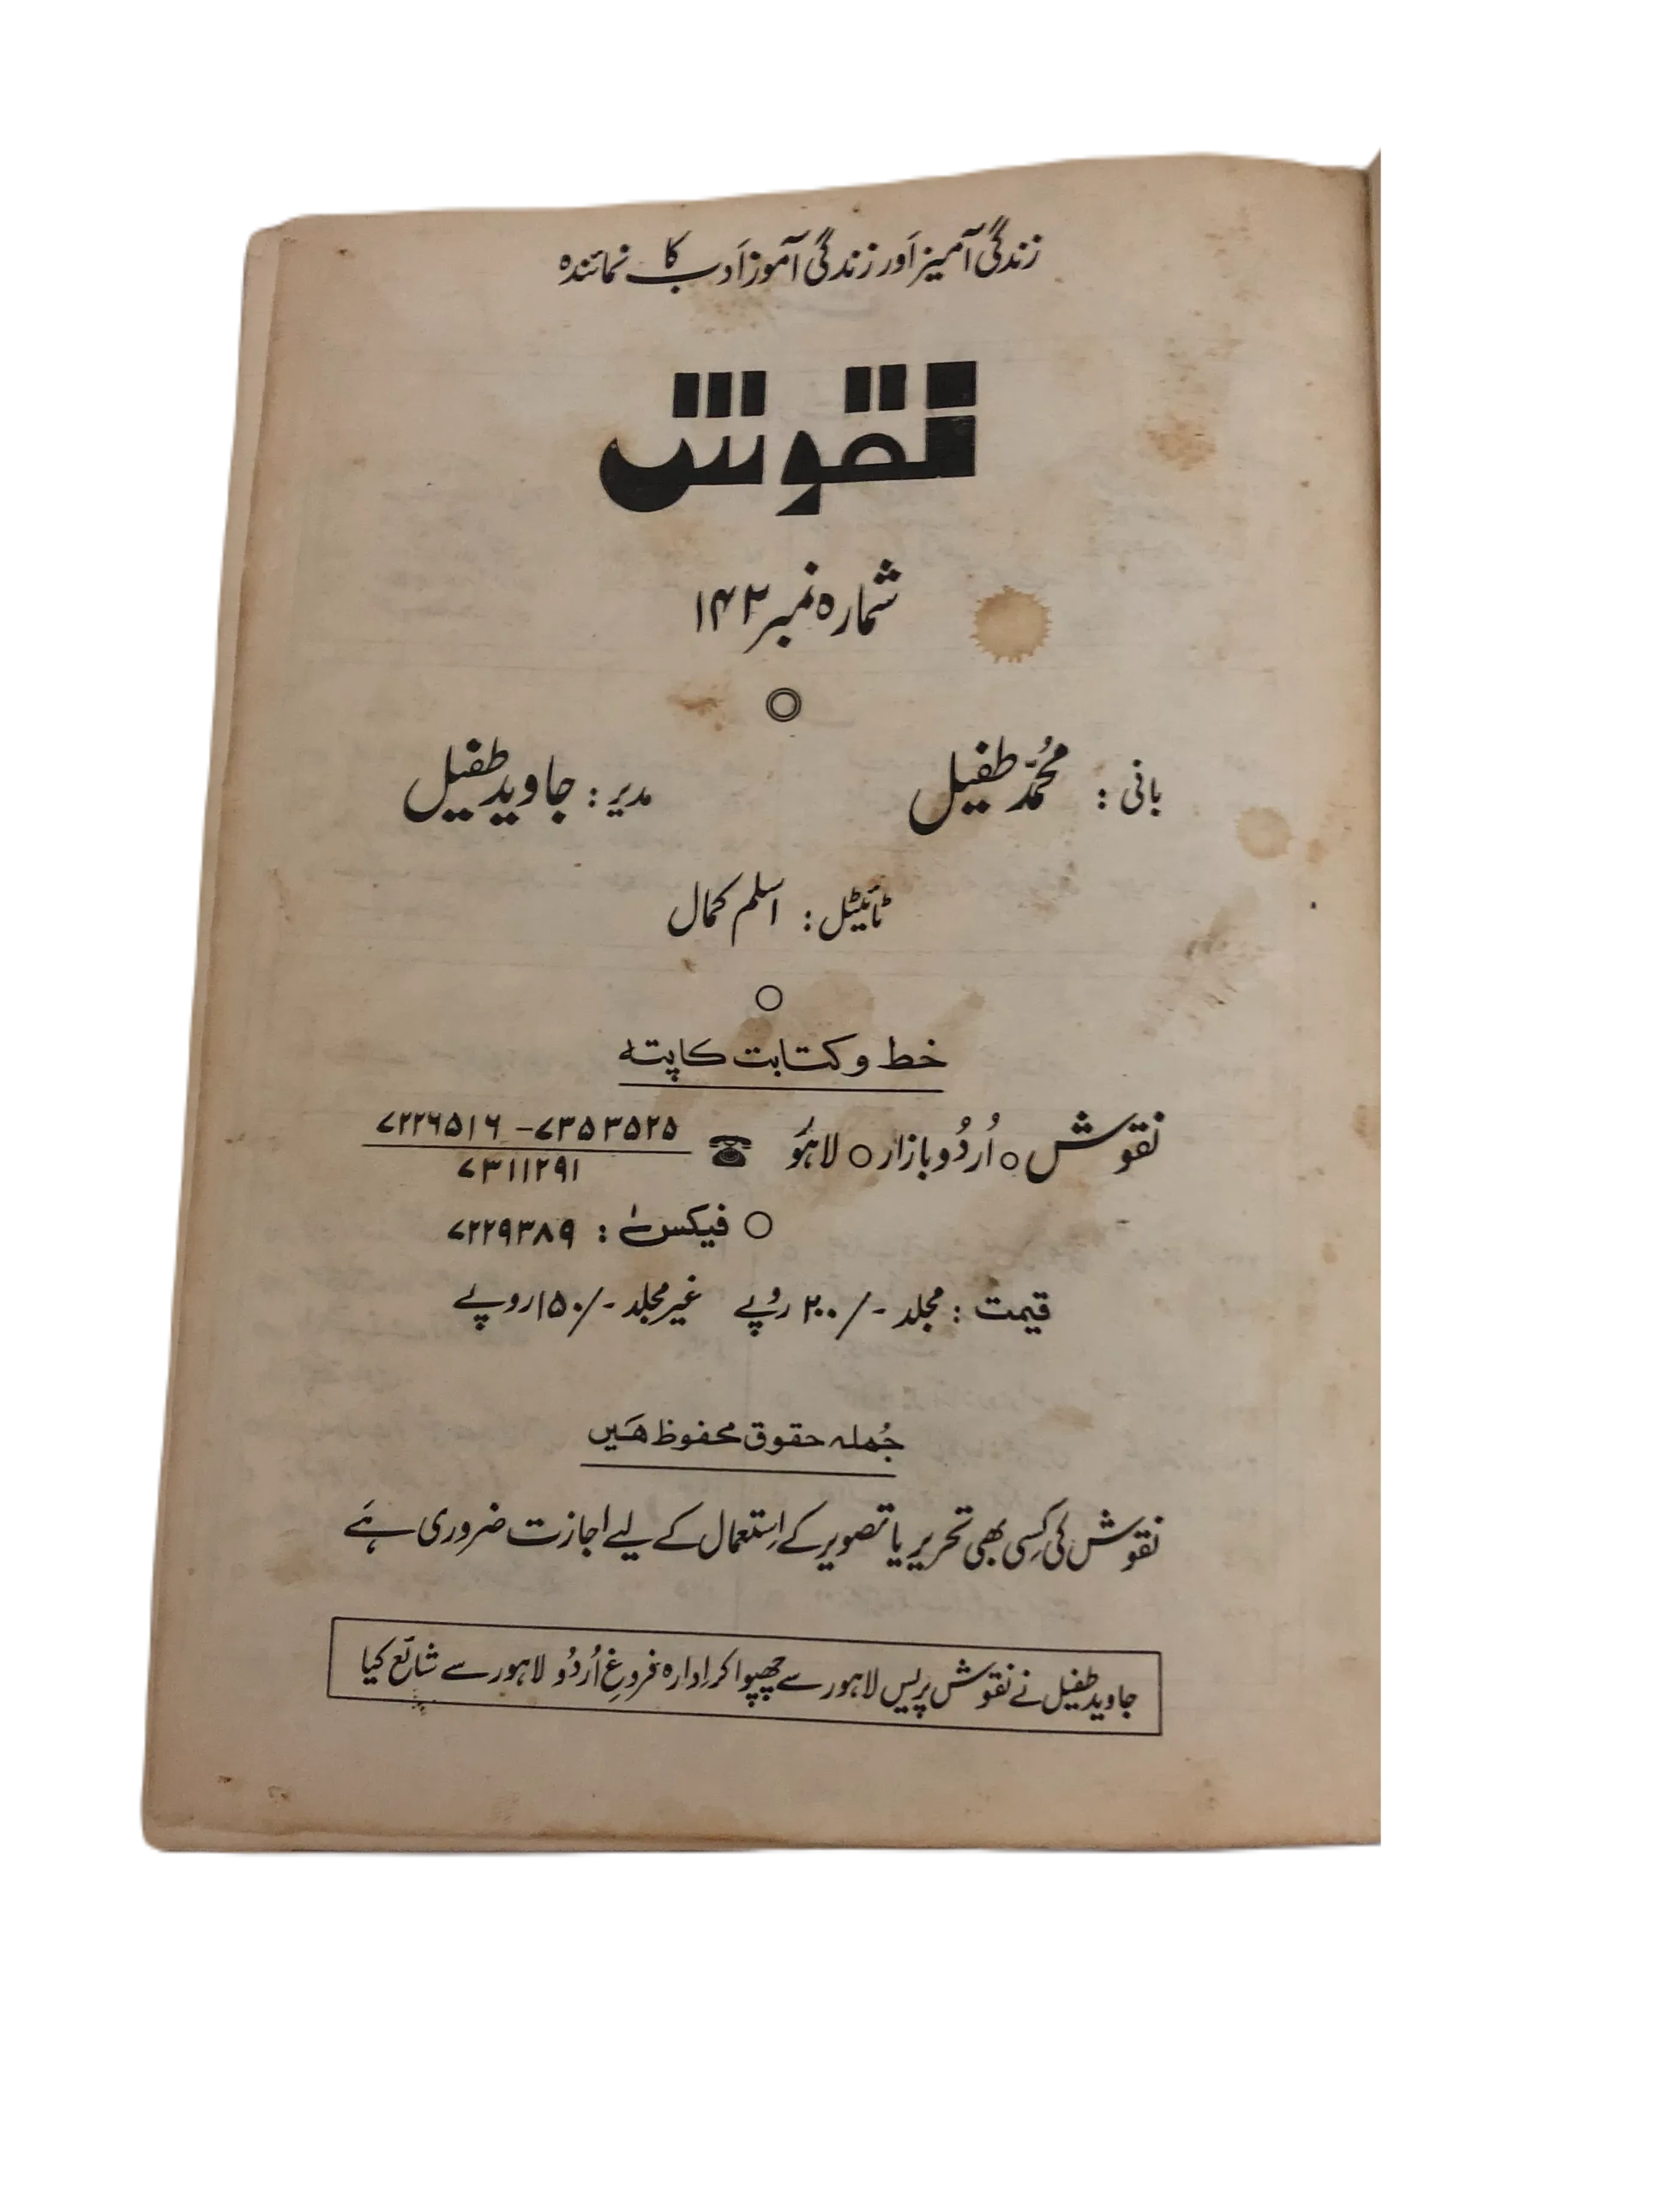 زندگی آمیز اَور زندگی آموز اَدب کا نمائندہ
نقوش
شمارہ نمبر ۱۴۲
بانی : محمّد طفیل
مدیر : جاوید طفیل
ٹائیٹل : اسلم کمال
خط و کتابت کا پتہ
نقوش ○ اُردُو بازار ○ لاہَور ☎ ۷۲۲۶۵۱۶ – ۷۳۵۳۵۲۵
۷۳۱۱۲۹۱
○ فیکس : ۷۲۲۹۳۸۹
قیمت : مجلد -/۲۰۰ رُوپے غیر مجلد -/۱۵۰ روپے
جُملہ حقوق محفوظ هَیں
نقوش کی کِسی بھی تحریر یا تصویر کے اِستعمال کے لیے اجازت ضروری ہَے
جاوید طفیل نے نقوش پریس لاہور سے چھپوا کر اِدارہ فروغِ اُردُو لاہور سے شائع کیا